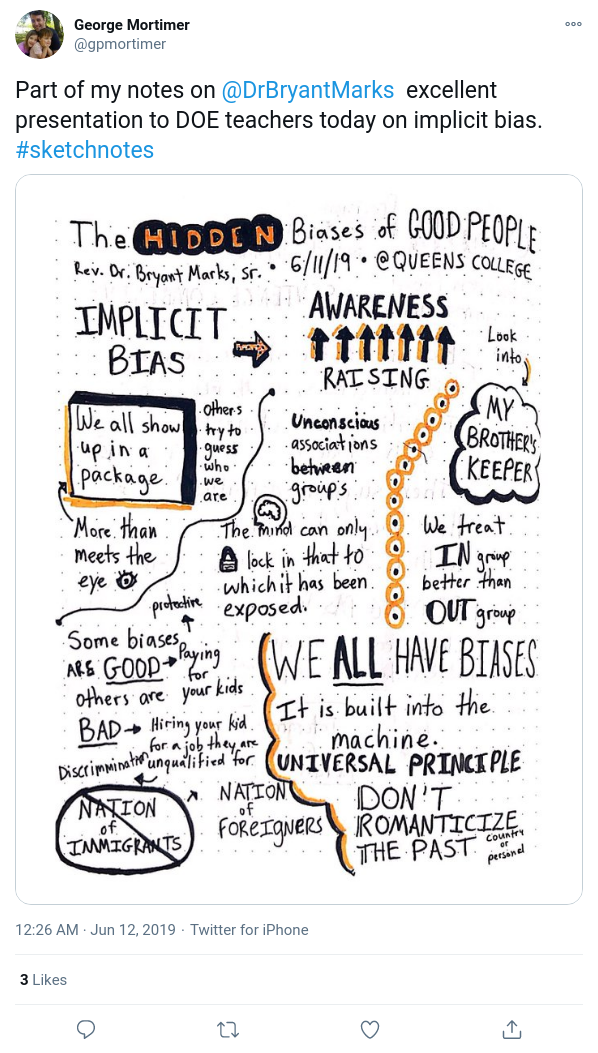 George Mortimer
@gpmortimer
Part of my notes on @DrBryantMarks excellent
presentation to DOE teachers today on implicit bias.
#sketchnotes
The HIDDEN Biases of GOOD PEOPLE
Rev. Dr. Bryant Marks, Sr. • 6/11/19 • @QUEENS COLLEGE
IMPLICIT
BIAS
AWARENESS
RAISING
Look
into
MY
BROTHER'S
KEEPER
We all show
up in a
package.
others
try to
guess
who
we
are
Unconscious
associations
between
group's
More than
meets the
eye
The mind can only
lock in that to
which it has been
exposed.
We treat
IN group
better than
OUT group
protective
Some biases
ARE GOOD → Paying
for
your kids
others are
BAD → Hiring your kid
for a job they are
unqualified for
Discrimination
WE ALL HAVE BIASES
It is built into the
machine.
UNIVERSAL PRINCIPLE
NATION
of
IMMIGRANTS
NATION
of
FOREIGNERS
DON'T
ROMANTICIZE
THE PAST
country
or
personal
12:26 AM · Jun 12, 2019 · Twitter for iPhone
3 Likes